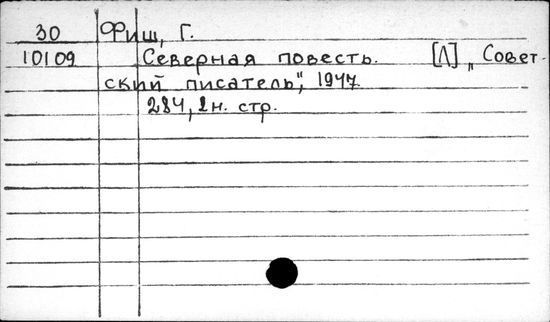 30 Фиш, Г.
10109 Северная повесть. [Л] „Совет-
ский писатель", 1947.
284, 2 н. стр.